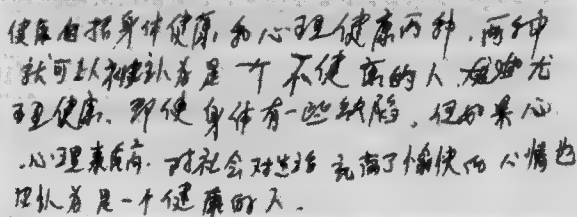 健康包括身体健康和心理健康两种,两种
就可以被认为是一个不健康的人,尤
理健康,即使身体有一些缺陷,但如果心
心理素质高,对社会对生活充满了愉快的心情也
认为是一个健康的人。